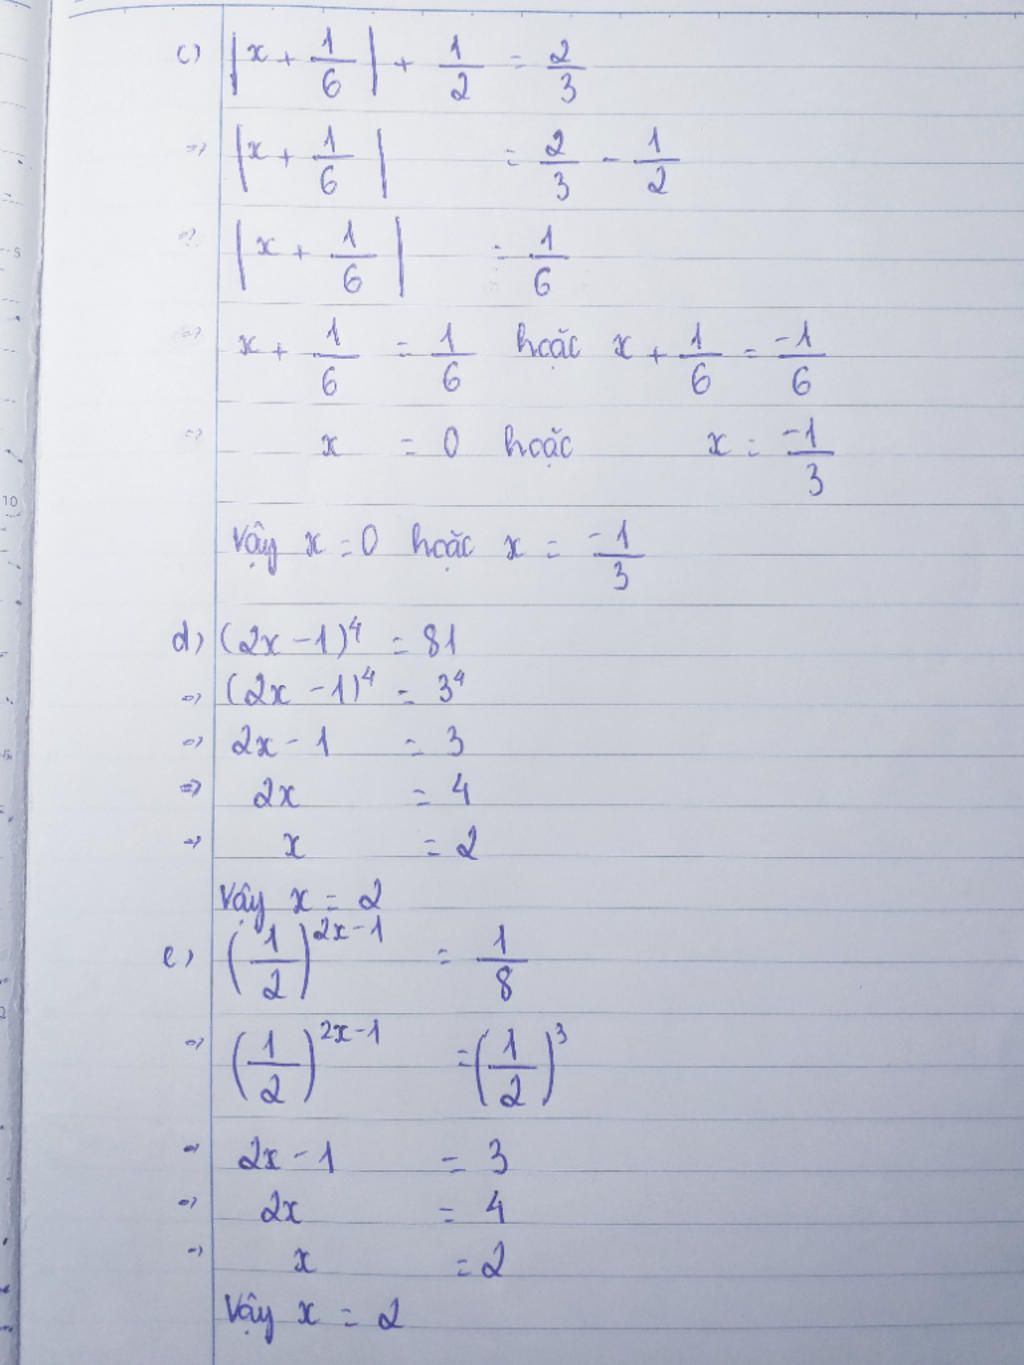 c) |x + 1/6| + 1/2 = 2/3
=> |x + 1/6| = 2/3 - 1/2
=> |x + 1/6| = 1/6
=> x + 1/6 = 1/6 hoặc x + 1/6 = -1/6
=> x = 0 hoặc x = -1/3
Vậy x = 0 hoặc x = -1/3
d) (2x - 1)⁴ = 81
=> (2x - 1)⁴ = 3⁴
=> 2x - 1 = 3
=> 2x = 4
=> x = 2
Vậy x = 2
e) (1/2)^(2x-1) = 1/8
=> (1/2)^(2x-1) = (1/2)³
=> 2x - 1 = 3
=> 2x = 4
=> x = 2
Vậy x = 2